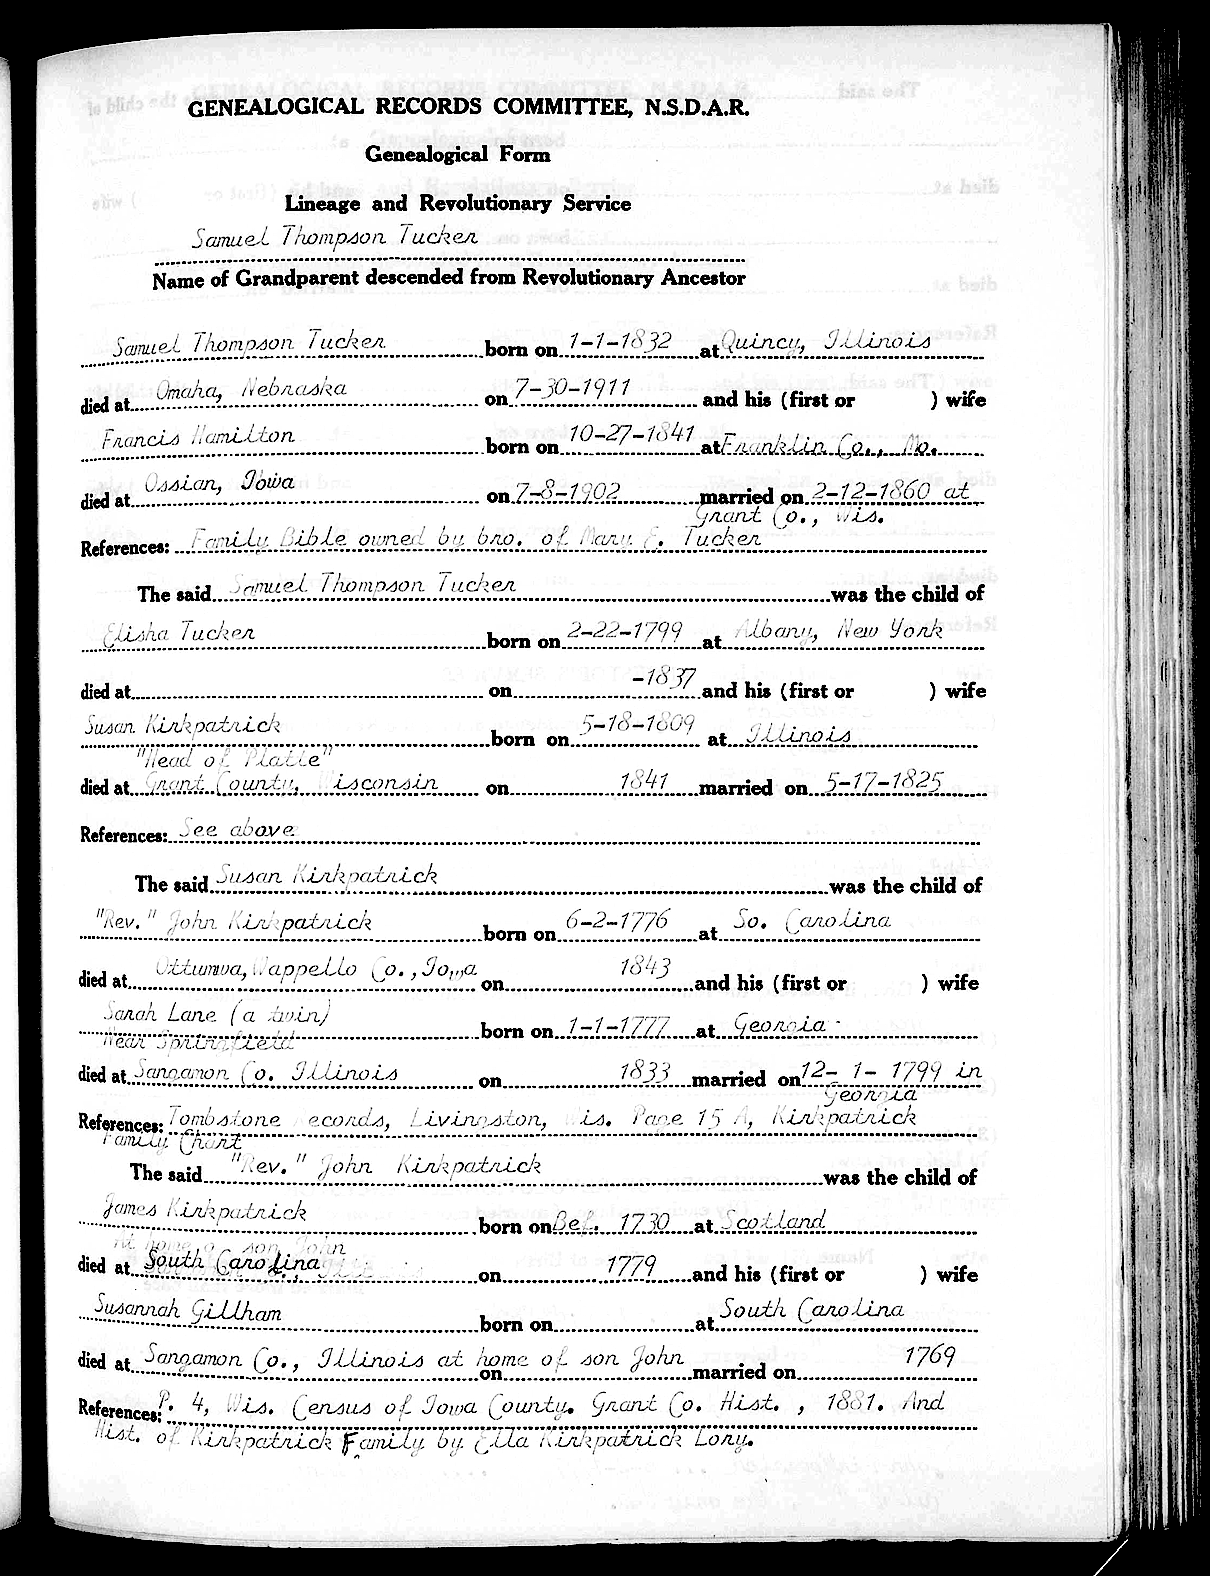 GENEALOGICAL RECORDS COMMITTEE, N.S.D.A.R.
Genealogical Form
Lineage and Revolutionary Service
Samuel Thompson Tucker
Name of Grandparent descended from Revolutionary Ancestor
Samuel Thompson Tucker born on 1-1-1832 at Quincy, Illinois
died at Omaha, Nebraska on 7-30-1911 and his (first or ) wife
Francis Hamilton born on 10-27-1841 at Franklin Co., Mo.
died at Ossian, Iowa on 7-8-1902 married on 2-12-1860 at
Grant Co., Wis.
References: Family Bible owned by bro. of Mary E. Tucker
The said Samuel Thompson Tucker was the child of
Elisha Tucker born on 2-22-1799 at Albany, New York
died at on -1837 and his (first or ) wife
Susan Kirkpatrick born on 5-18-1809 at Illinois
"Head of Platte"
died at Grant County, Wisconsin on 1841 married on 5-17-1825
References: See above
The said Susan Kirkpatrick was the child of
"Rev." John Kirkpatrick born on 6-2-1776 at So. Carolina
died at Ottumwa, Wappello Co., Iowa on 1843 and his (first or ) wife
Sarah Lane (a twin) born on 1-1-1777 at Georgia
Near Springfield
died at Sangamon Co. Illinois on 1833 married on 12- 1- 1799 in
Georgia
References: Tombstone Records, Livingston, Wis. Page 15 A, Kirkpatrick
Family Chart
The said "Rev." John Kirkpatrick was the child of
James Kirkpatrick born on Bef. 1730 at Scotland
at home of son John
died at South Carolina on 1779 and his (first or ) wife
Susannah Gillham born on at South Carolina
died at Sangamon Co., Illinois at home of son John on married on 1769
References: P. 4, Wis. Census of Iowa County. Grant Co. Hist. , 1881. And
Hist. of Kirkpatrick Family by Ella Kirkpatrick Lory.